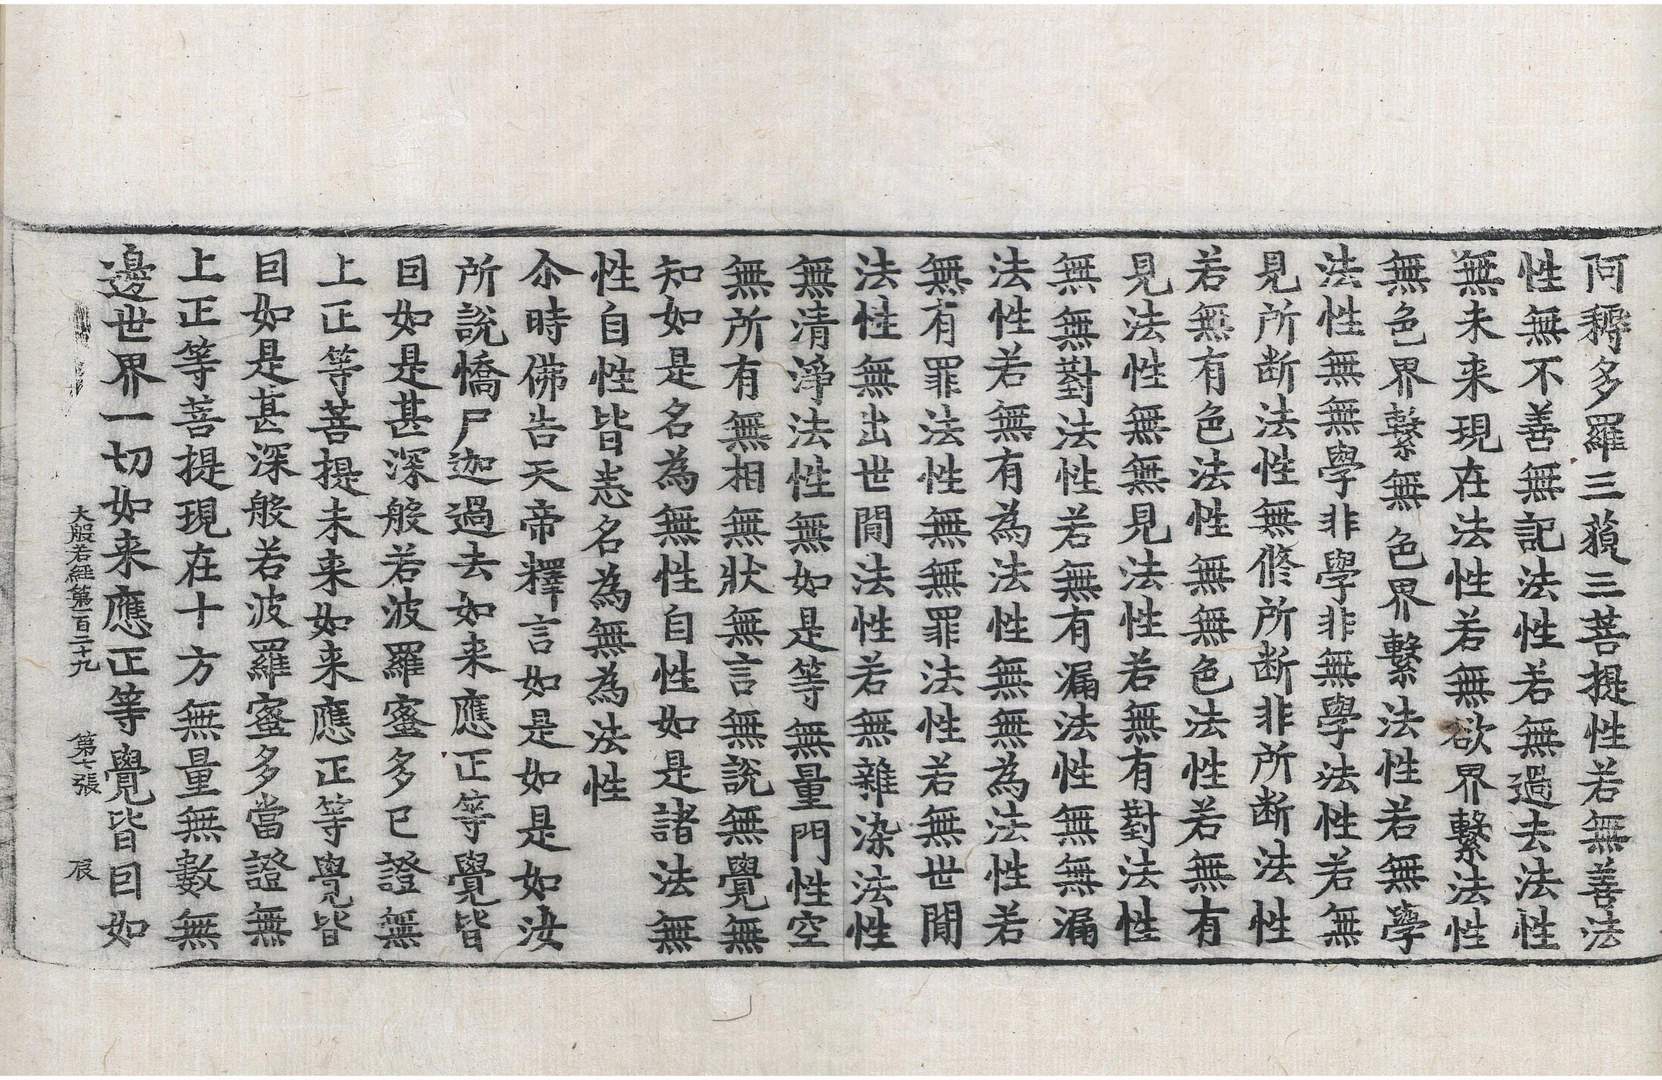 阿耨多羅三藐三菩提性若無善法
性無不善無記法性若無過去法性
無未来現在法性若無欲界繫法性
無色界繫無色界繫法性若無學
法性無無學非學非無學法性若無
見所断法性無修所断非所断法性
若無有色法性無無色法性若無有
見法性無無見法性若無有對法性
無無對法性若無有漏法性無無漏
法性若無有為法性無無為法性若
無有罪法性無無罪法性若無世間
法性無出世間法性若無雜染法性
無清淨法性無如是等無量門性空
無所有無相無狀無言無說無覺無
知如是名為無性自性如是諸法無
性自性皆悉名為無為法性
尒時佛告天帝釋言如是如是如汝
所說憍尸迦過去如来應正等覺皆
囙如是甚深般若波羅蜜多已證無
上正等菩提未来如来應正等覺皆
囙如是甚深般若波羅蜜多當證無
上正等菩提現在十方無量無數無
邊世界一切如来應正等覺皆囙如
大般若經第一百二十九 第七張 宸